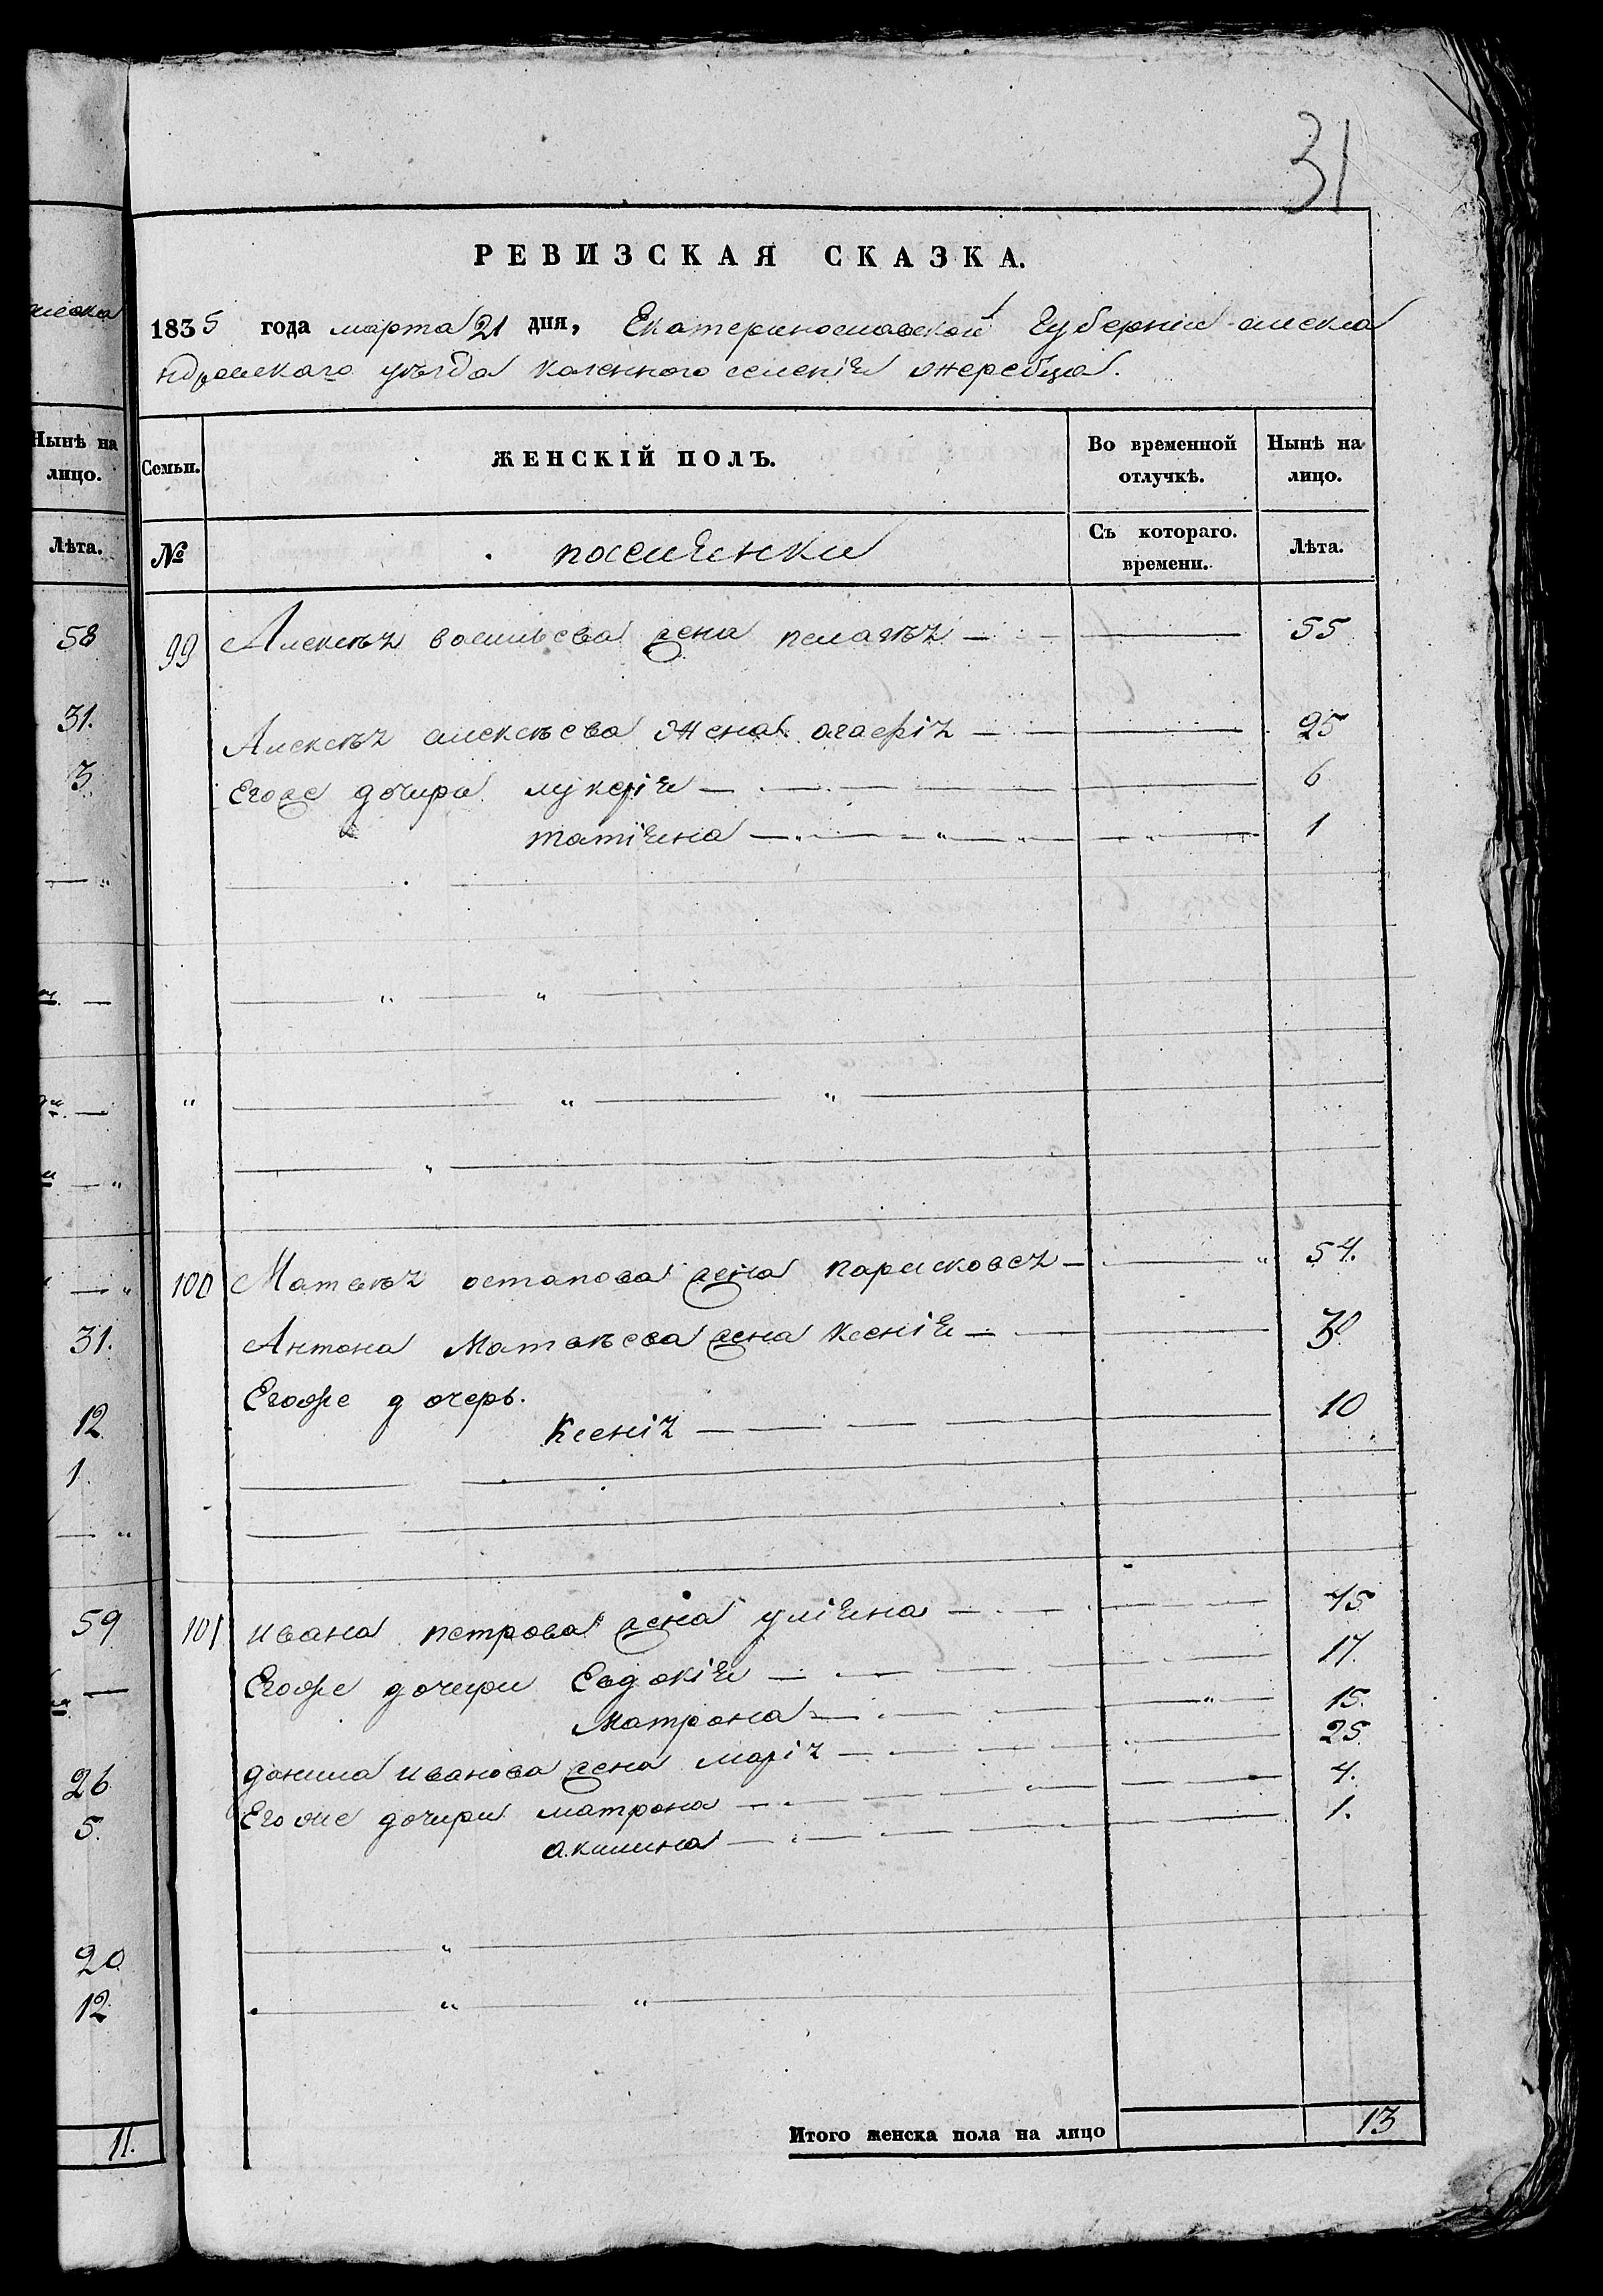 31
РЕВИЗСКАЯ СКАЗКА.
1835 года марта 21 дня, Екатеринославской Губернии алекса
ндровскаго уѣзда казенного селенія жеребца.
Нынѣ на
лицо.
Лѣта.
58
31.
3
31.
12
1.
59
26
5.
20
12
11.
Семьи. ЖЕНСКІЙ ПОЛЪ. Во временной отлучкѣ. Нынѣ на лицо.
№ поселянки Съ котораго. времени. Лѣта.
99 Алексѣя васильева жена пелагѣя 55
Алексѣя алексѣева жена агафія 25
Егоже дочери лукерія 6
татіяна 1
100 Матвѣя остапова жена парасковея 54.
Антона Матвѣева жена ксенія 30
Егоже дочерь.
Ксенія 10
101 ивана петрова жена уліяна 45
Егоже дочери Евдокія 17.
Матрона 15.
данила иванова жена марія 25.
Егоже дочери матрона 4.
акилина 1.
Итого женска пола на лицо 13